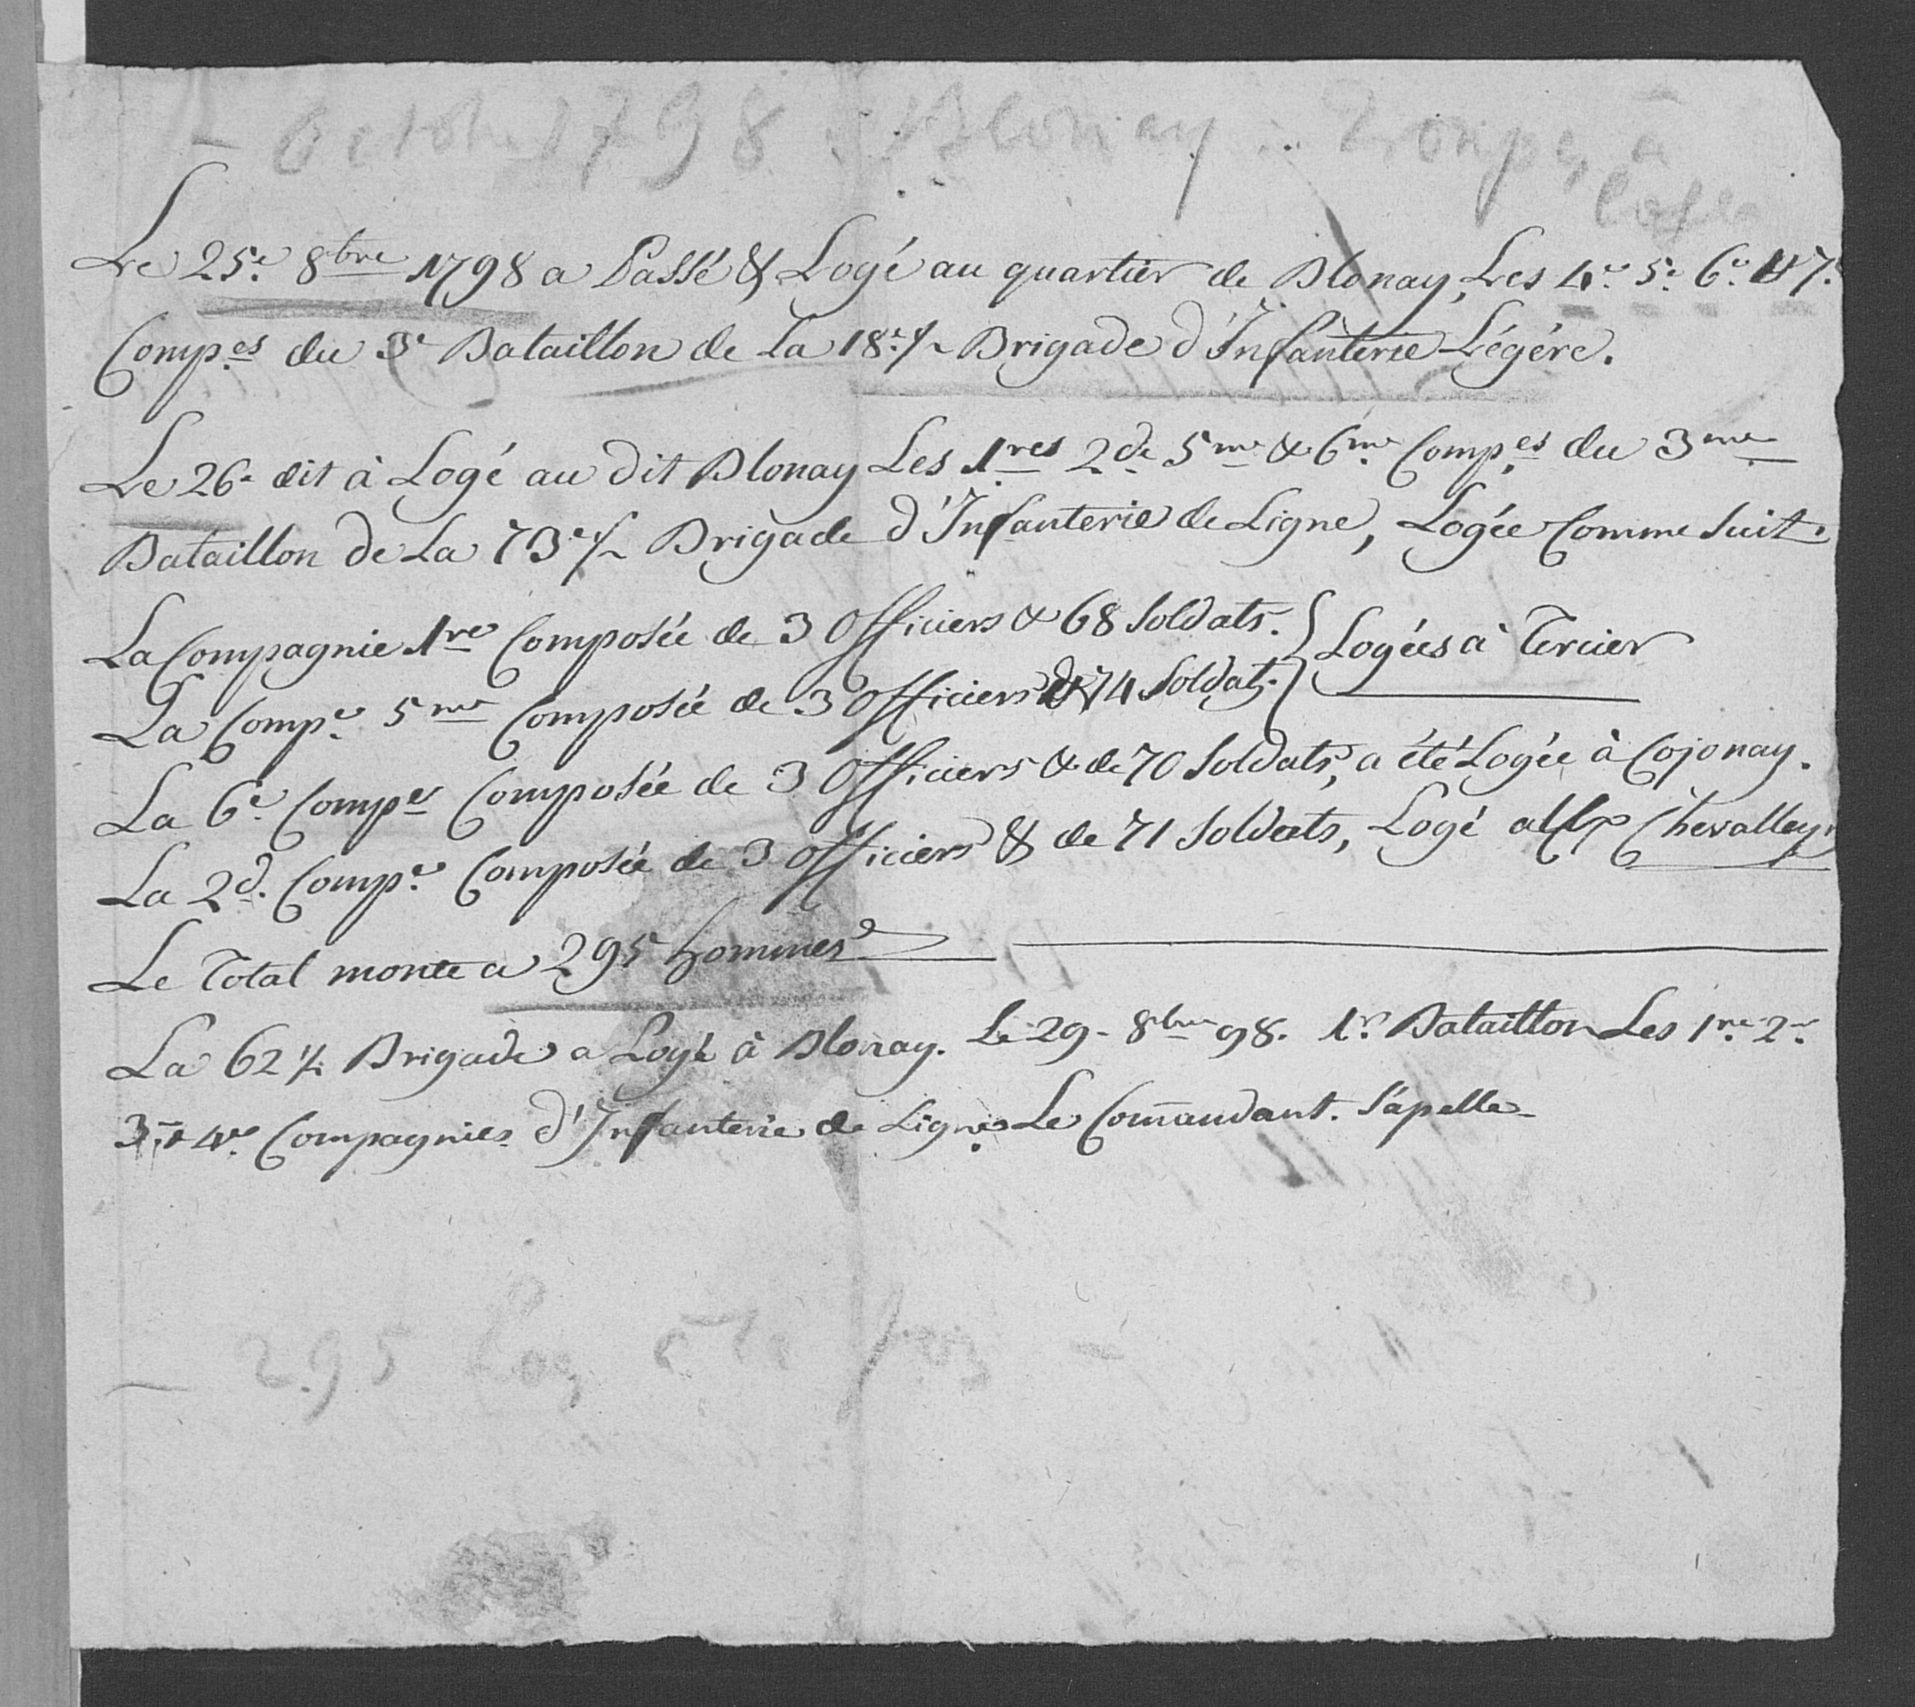 Octob. 1798 Blonay: Troupes à
loger
Le 25e. 8bre 1798 a Passé & Logé au quartier de Blonay, Les 4e. 5e. 6e. & 7e.
Comp.es du 3e Bataillon de La 18e. ½ Brigade d'Infanterie Légére.
Le 26e dit à Logé au dit Blonay Les 1res 2de 5me & 6me Comp.es du 3eme
Bataillon de La 73e ½ Brigade d'Infanterie de Ligne, Logée Comme Suit.
La Compagnie 1re Composée de 3 Officiers & 68 Soldats. } Logées à Tercier
La Comp.e 5me Composée de 3 Officiers & 74 Soldats.
La 6e Compe Composée de 3 Officiers & de 70 Soldats, a été Logée à Cojonay.
La 2d. Comp.e Composée de 3 Officiers & de 71 Soldats, Logé Chevalley
Le Total monte a 295 hommes
La 62 ½ Brigade a Logé à Blonay. Le 29 - 8bre 98. 1r. Bataillon Les 1re. 2e.
3e & 4e. Compagnies d'Infanterie de Ligne Le Com̄andant. S'apelle
295